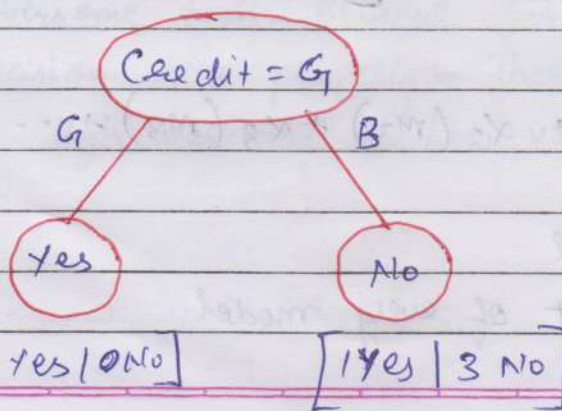 Credit = G
G B
Yes No
Yes | 0 No] [1 Yes | 3 No]